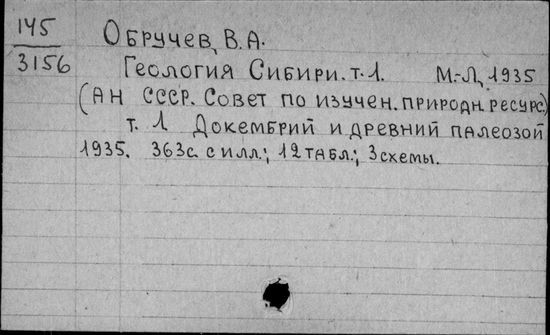 145
3156
Обручев, В.А.
Геология Сибири. т.1. М.-Л, 1935
(АН СССР. Совет по изучен. природн. ресурс)
т. 1 Докембрий и древний палеозой
1935. 363с. с илл.; 12 табл.; 3 схемы.